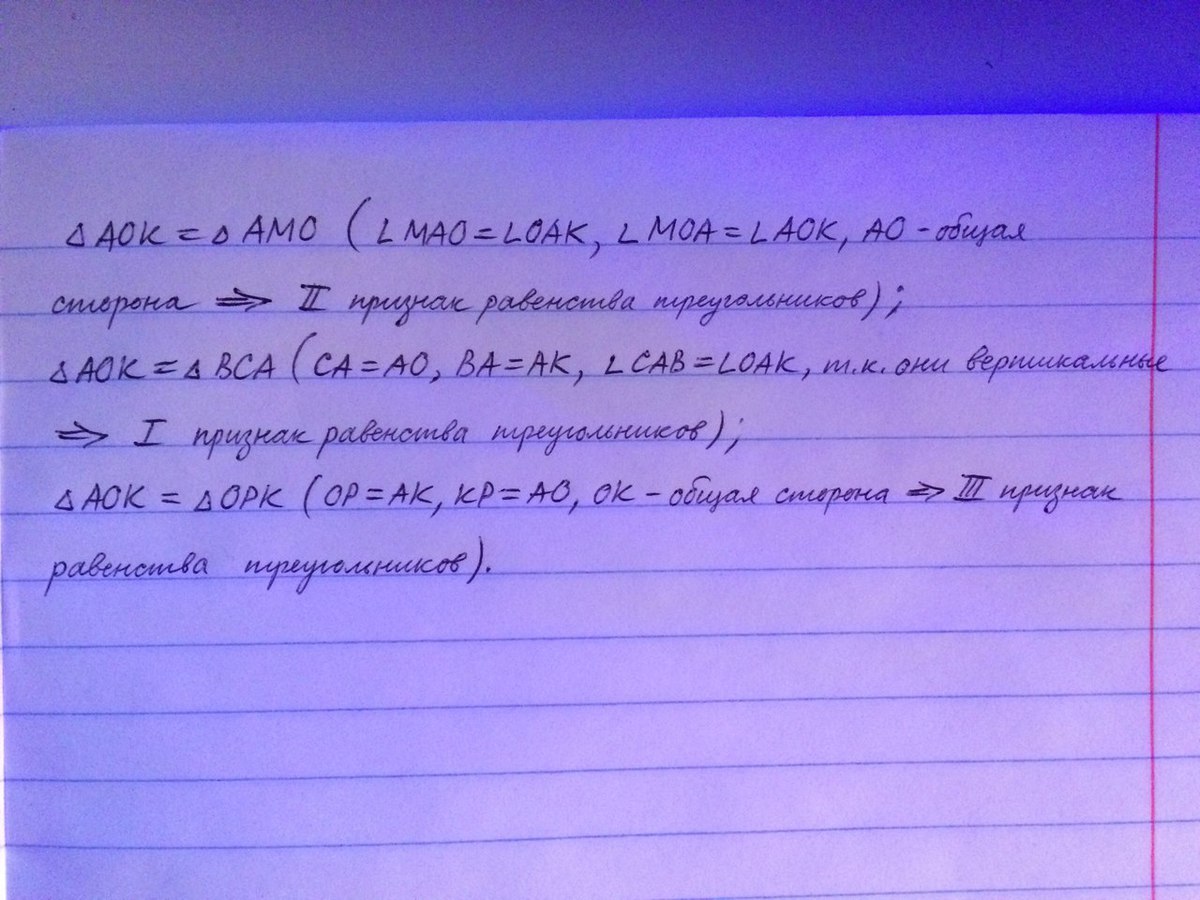 △AOK = △AMO (∠MAO=∠OAK, ∠MOA=∠AOK, AO - общая
сторона ⇒ II признак равенства треугольников);
△AOK = △BCA (CA=AO, BA=AK, ∠CAB=∠OAK, т.к. они вертикальные
⇒ I признак равенства треугольников);
△AOK = △OPK (OP=AK, KP=AO, OK - общая сторона ⇒ III признак
равенства треугольников).